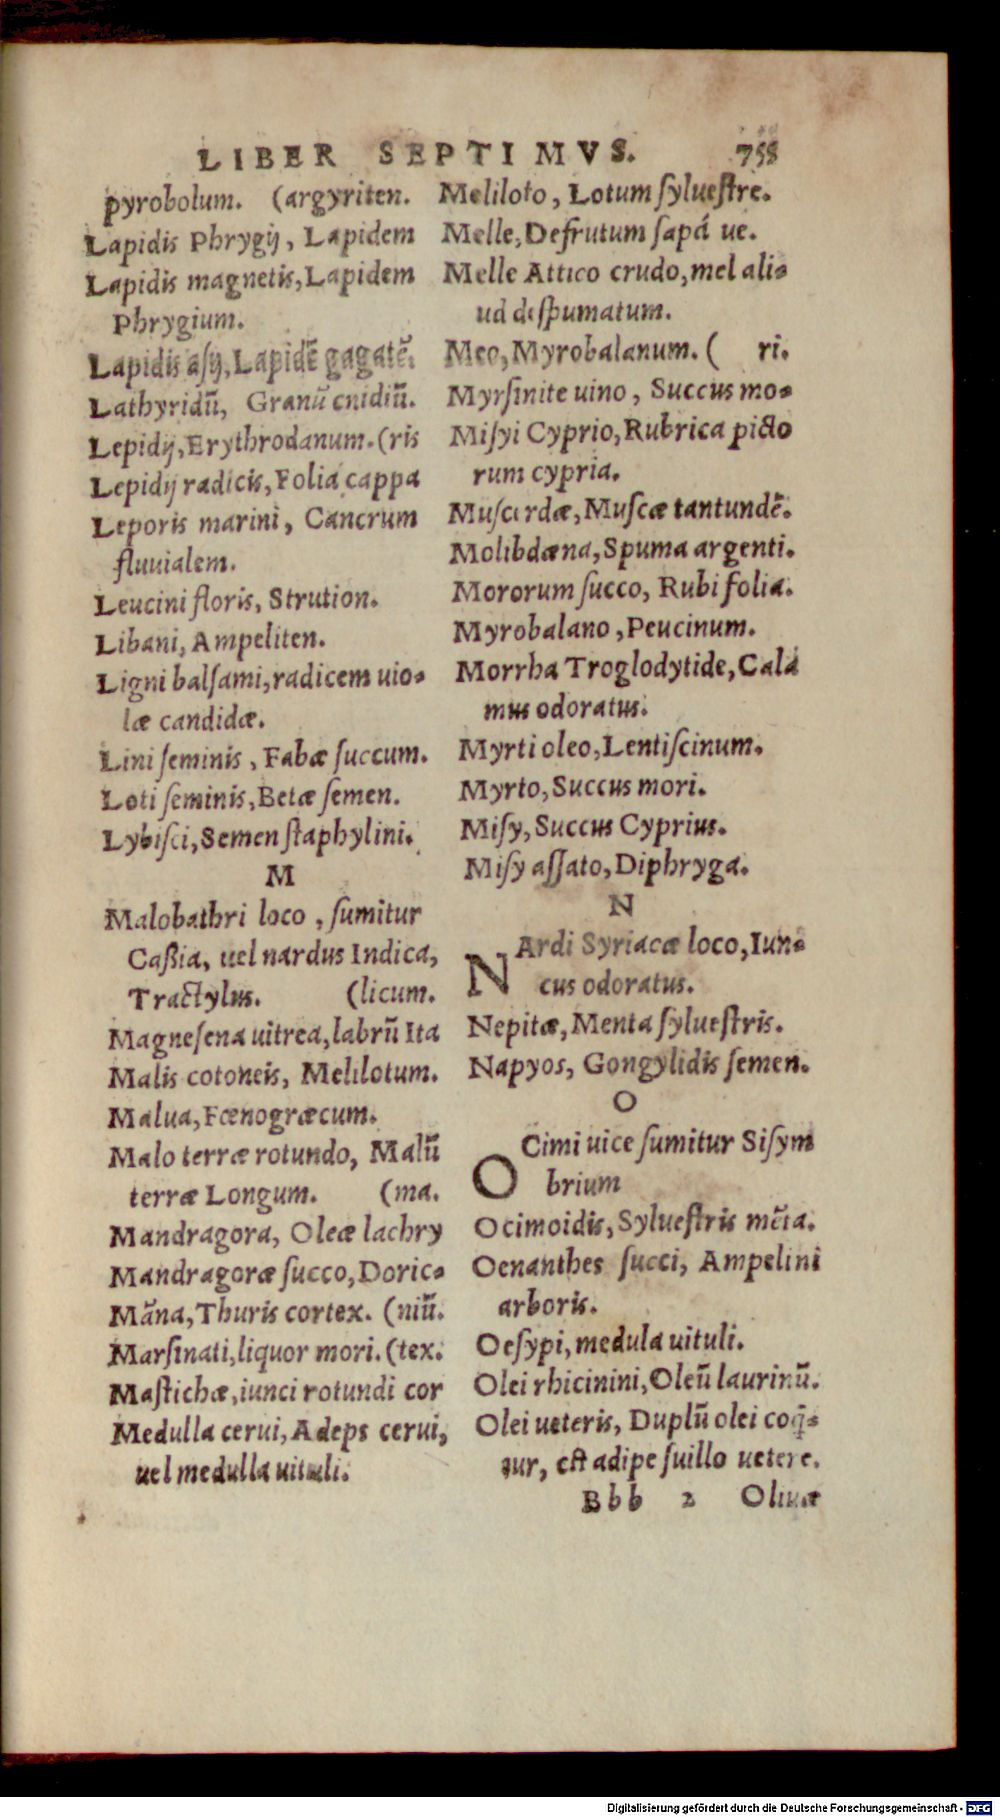 LIBER SEPTIMVS. 755
pyrobolum. (argyriten.
Lapidis Phrygij, Lapidem
Lapidis magnetis, Lapidem
Phrygium.
Lapidis asij, Lapidē gagatē.
Lathyridū, Granū cnidiū.
Lepidij, Erythrodanum. (ris
Lepidij radicis, Folia cappa
Leporis marini, Cancrum
fluuialem.
Leucini floris, Strution.
Libani, Ampeliten.
Ligni balſami, radicem uio-
læ candidæ.
Lini ſeminis, Fabæ ſuccum.
Loti ſeminis, Betæ ſemen.
Lybiſci, Semen ſtaphylini.
M
Malobathri loco, ſumitur
Caßia, uel nardus Indica,
Tractylus. (licum.
Magneſena uitrea, labrū Ita
Malis cotoneis, Melilotum.
Malua, Fœnogræcum.
Malo terræ rotundo, Malū
terræ Longum. (ma.
Mandragora, Oleæ lachry
Mandragoræ ſucco, Doric-
Māna, Thuris cortex. (niū.
Marſinati, liquor mori. (tex.
Maſtichæ, iunci rotundi cor
Medulla cerui, Adeps cerui,
uel medulla uituli.
Meliloto, Lotum ſylueſtre.
Melle, Defrutum ſapá ue.
Melle Attico crudo, mel ali-
ud deſpumatum.
Meo, Myrobalanum. ( ri.
Myrſinite uino, Succus mo-
Miſyi Cyprio, Rubrica picto
rum cypria.
Muſcerdæ, Muſcæ tantundē.
Molibdæna, Spuma argenti.
Mororum ſucco, Rubi folia.
Myrobalano, Peucinum.
Morrha Troglodytide, Cala
mus odoratus.
Myrti oleo, Lentiſcinum.
Myrto, Succus mori.
Miſy, Succus Cyprius.
Miſy aſſato, Diphryga.
N
NArdi Syriacæ loco, Iun-
cus odoratus.
Nepitæ, Menta ſylueſtris.
Napyos, Gongylidis ſemen.
O
OCimi uice ſumitur Siſym
brium
Ocimoidis, Sylueſtris mēta.
Oenanthes ſucci, Ampelini
arboris.
Oeſypi, medula uituli.
Olei rhicinini, Oleū laurinū.
Olei ueteris, Duplū olei coq̄-
tur, eſt adipe ſuillo uetere.
Bbb 2 Oliuæ
Digitalisierung gefördert durch die Deutsche Forschungsgemeinschaft - DFG